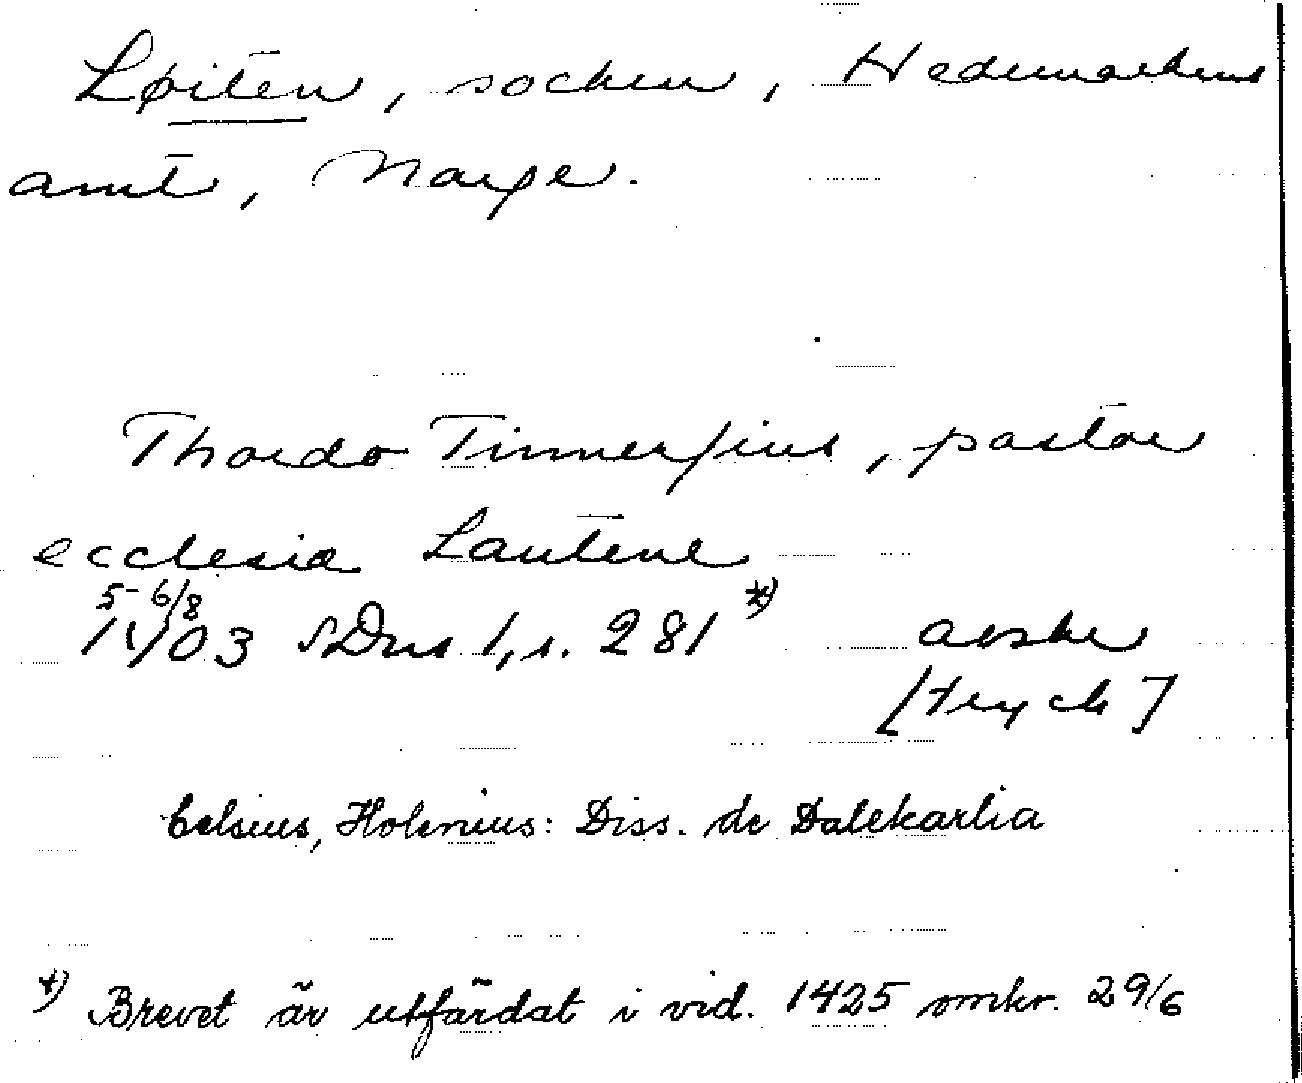 Løiten, socken, Hedemarkens
amt, Norge.
Thordo Tinnerfius, pastor
ecclesiæ Lautene
5-6/8
1403 SDns 1, s. 281 *)
avskr
[tryck]
Celsius, Holenius: Diss. de Dalekarlia
*) Brevet är utfärdat i vid. 1425 omkr. 29/6